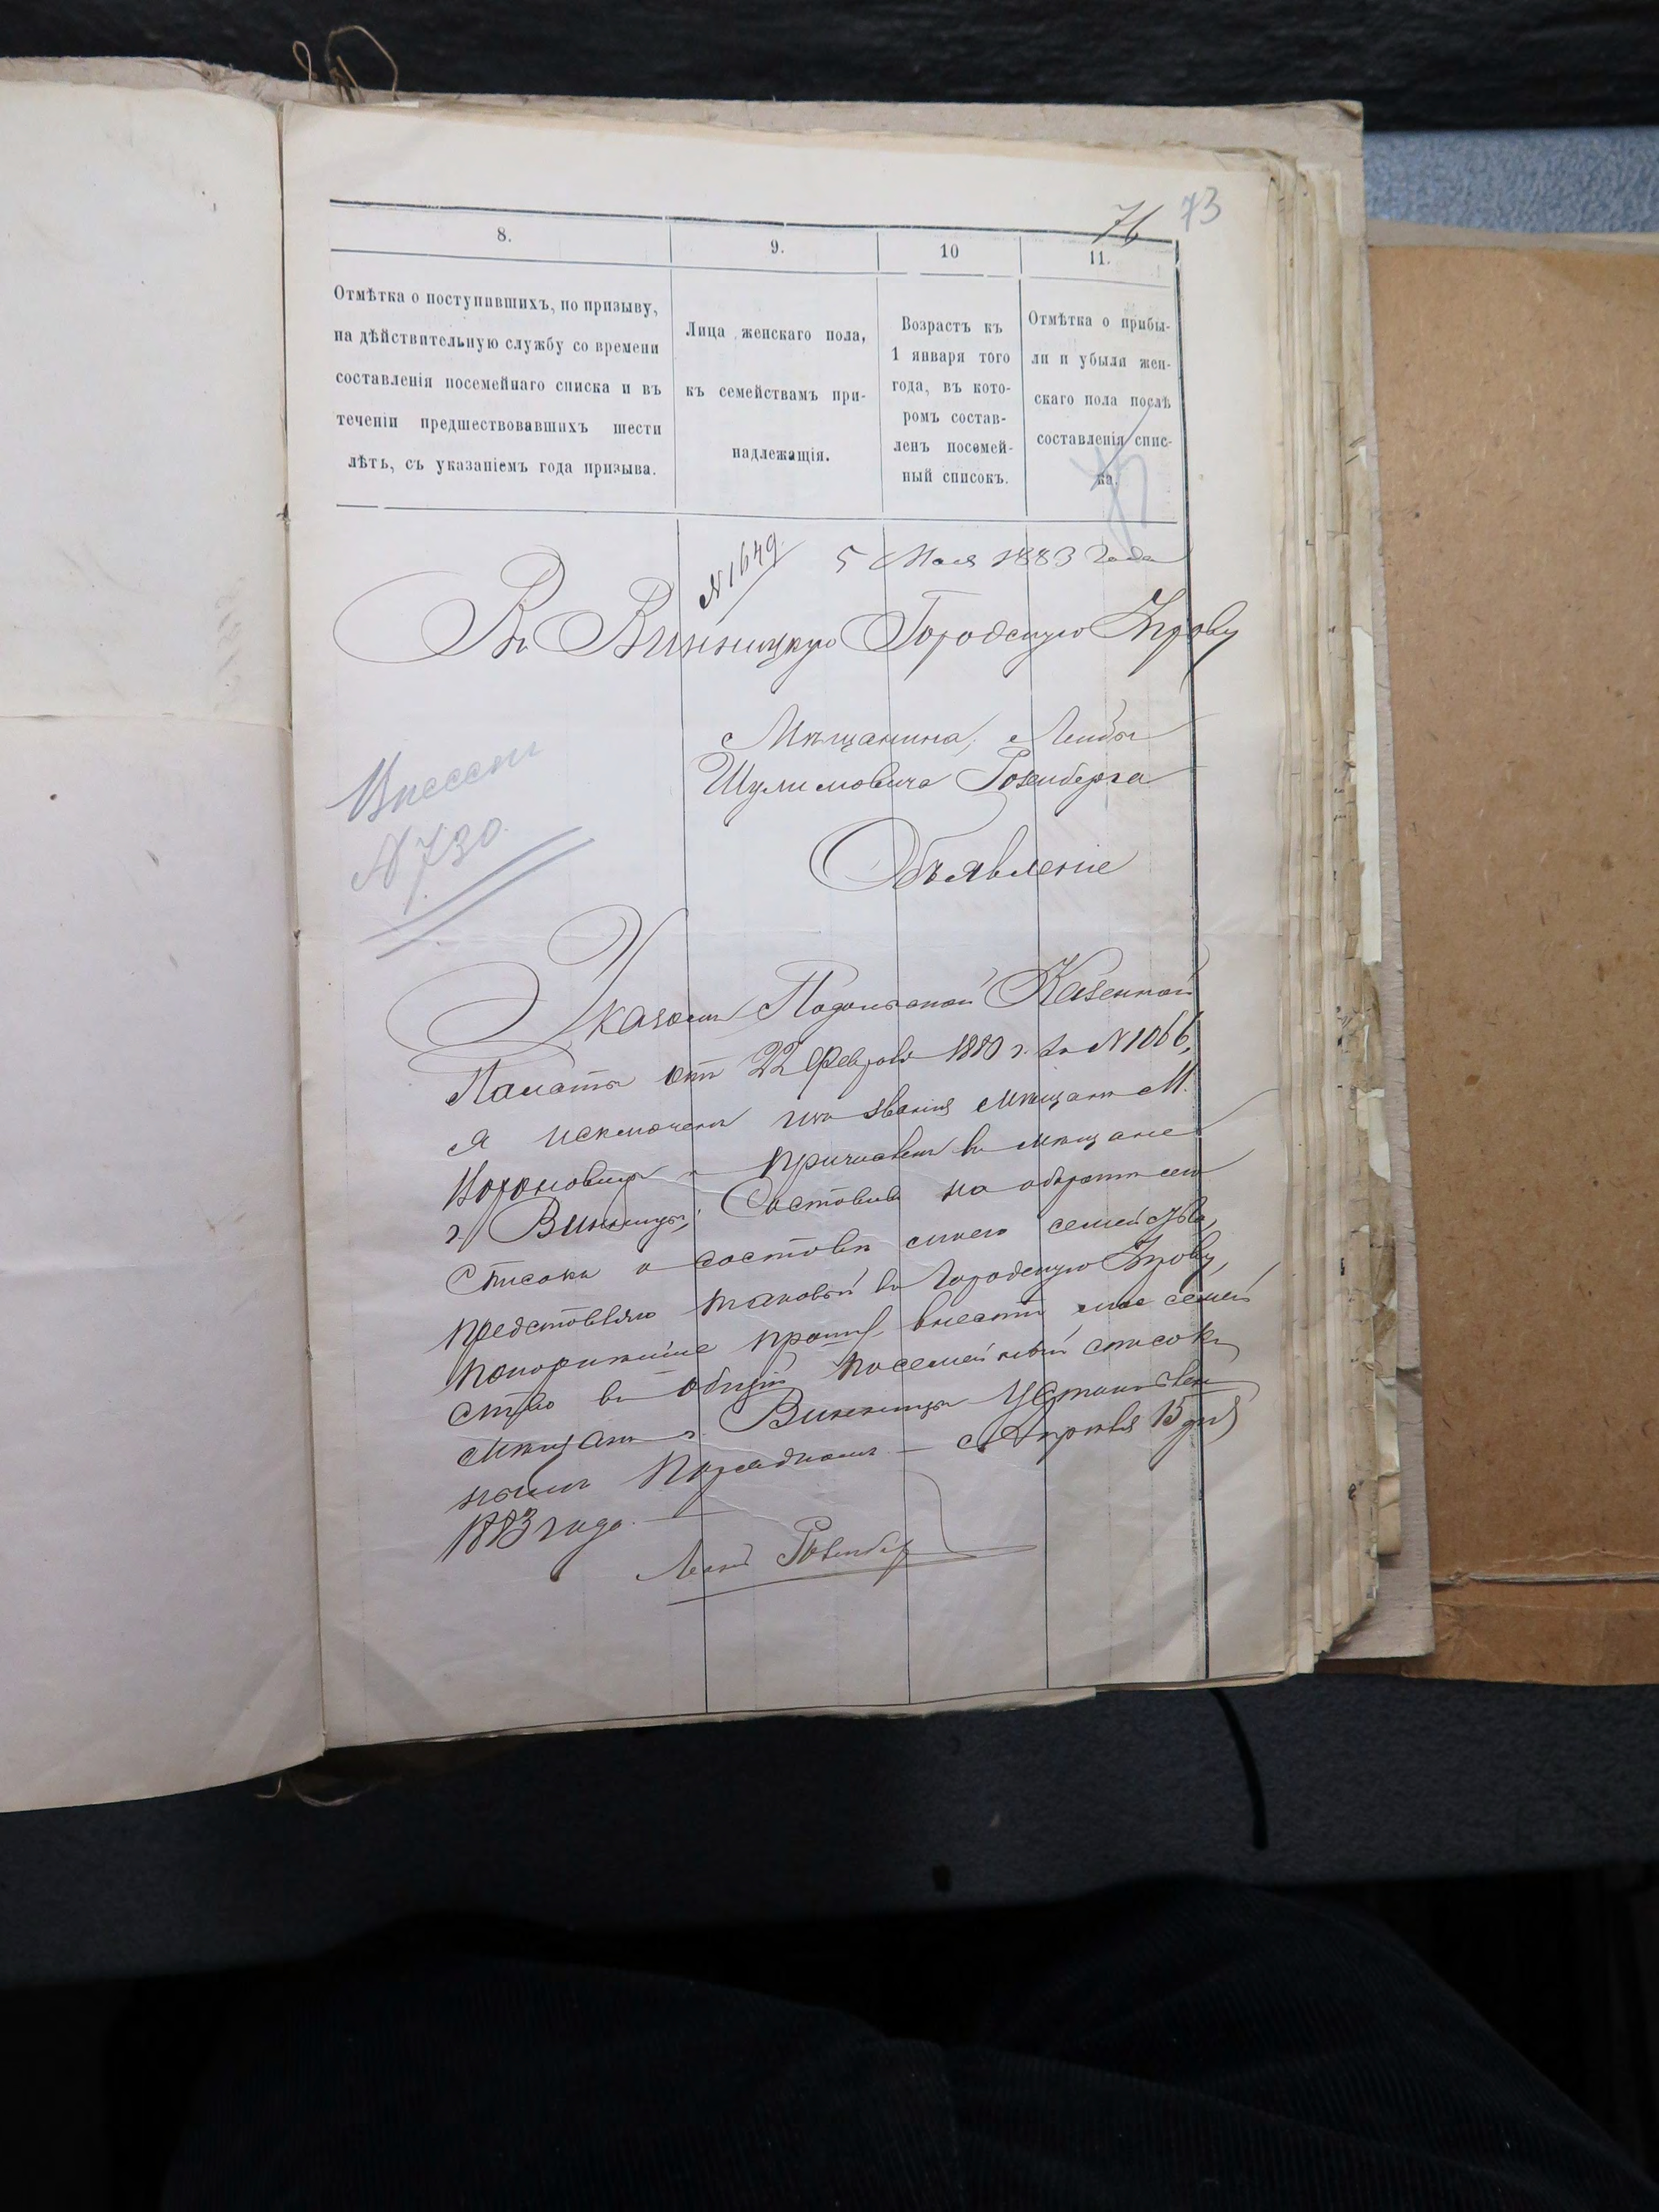 76 73
8.
9.
10
11.
Отмѣтка о поступившихъ, по призыву,
на дѣйствительную службу со времени
составленія посемейнаго списка и въ
теченіи предшествовавшихъ шести
лѣтъ, съ указаніемъ года призыва.
Лица женскаго пола,
къ семействамъ при-
надлежащія.
Возрастъ къ
1 января того
года, въ кото-
ромъ состав-
ленъ посемей-
ный списокъ.
Отмѣтка о прибы-
ли и убыли жен-
скаго пола послѣ
составленія спис-
ка.
№ 1649
5 Мая 1883 Года
Въ Винницкую Городскую Управу
Мѣщанина, Лейбы
Шулимовича Розенберга
Внесенъ
№ 730.
Объявленіе
Указомъ Подольской Казенной
Палаты отъ 22 Февраля 1880 г. за № 1066,
я исключенъ изъ званія мѣщанъ М.
Вороновицы и причисленъ въ мѣщане
г. Винницы; Составивъ на оборотѣ сего
Списокъ о составѣ моего семейства,
представляю таковый въ Городскую Управу,
покорнѣйше прошу внести мое семей
ство въ общій посемейный списокъ
мѣщанъ г. Винницы Установлен
нымъ Порядкомъ. — Апрѣля 15 дня
1883 года. —
Розенберг